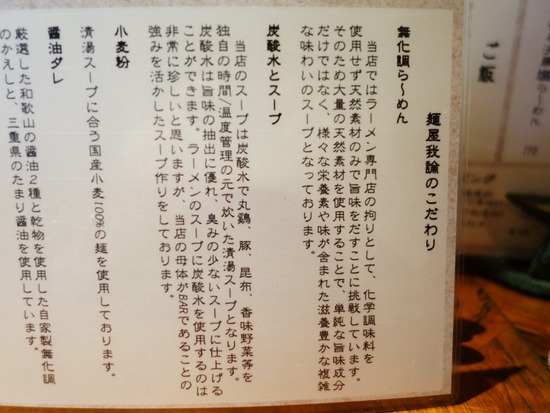 ご飯
麺屋我論のこだわり
無化調ら〜めん
当店ではラーメン専門店の拘りとして、化学調味料を
使用せず天然素材のみで旨味をだすことに挑戦しています。
そのため大量の天然素材を使用することで、単純な旨味成分
だけではなく、様々な栄養素や味が含まれた滋養豊かな複雑
な味わいのスープとなっております。
炭酸水とスープ
当店のスープは炭酸水で丸鶏、豚、昆布、香味野菜等を
独自の時間/温度管理の元で炊いた清湯スープとなります。
炭酸水は旨味の抽出に優れ、臭みの少ないスープに仕上げる
ことができます。ラーメンのスープに炭酸水を使用するのは
非常に珍しいと思いますが、当店の母体がBARであることの
強みを活かしたスープ作りをしております。
小麦粉
清湯スープに合う国産小麦100%の麺を使用しております。
醤油ダレ
厳選した和歌山の醤油2種と乾物を使用した自家製無化調
のかえしと、三重県のたまり醤油を使用しています。